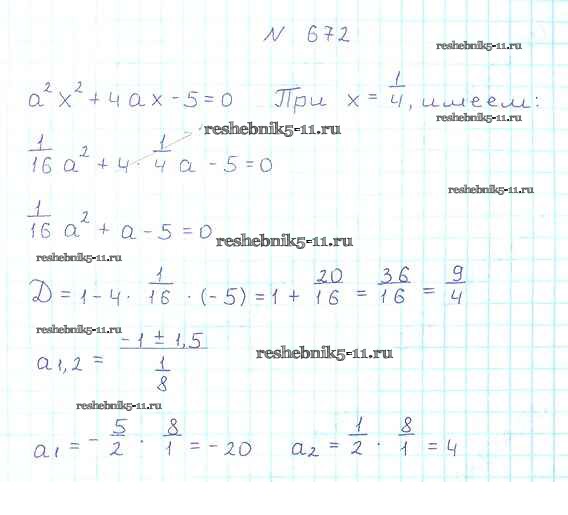 № 672
reshebnik5-11.ru
a² x² + 4 a x - 5 = 0 При x = 1/4, имеем:
reshebnik5-11.ru
reshebnik5-11.ru
1/16 a² + 4 · 1/4 a - 5 = 0
reshebnik5-11.ru
1/16 a² + a - 5 = 0
reshebnik5-11.ru
reshebnik5-11.ru
D = 1 - 4 · 1/16 · (-5) = 1 + 20/16 = 36/16 = 9/4
reshebnik5-11.ru
a1,2 = (-1 ± 1,5)/(1/8)
reshebnik5-11.ru
reshebnik5-11.ru
a1 = - 5/2 · 8/1 = -20 a2 = 1/2 · 8/1 = 4